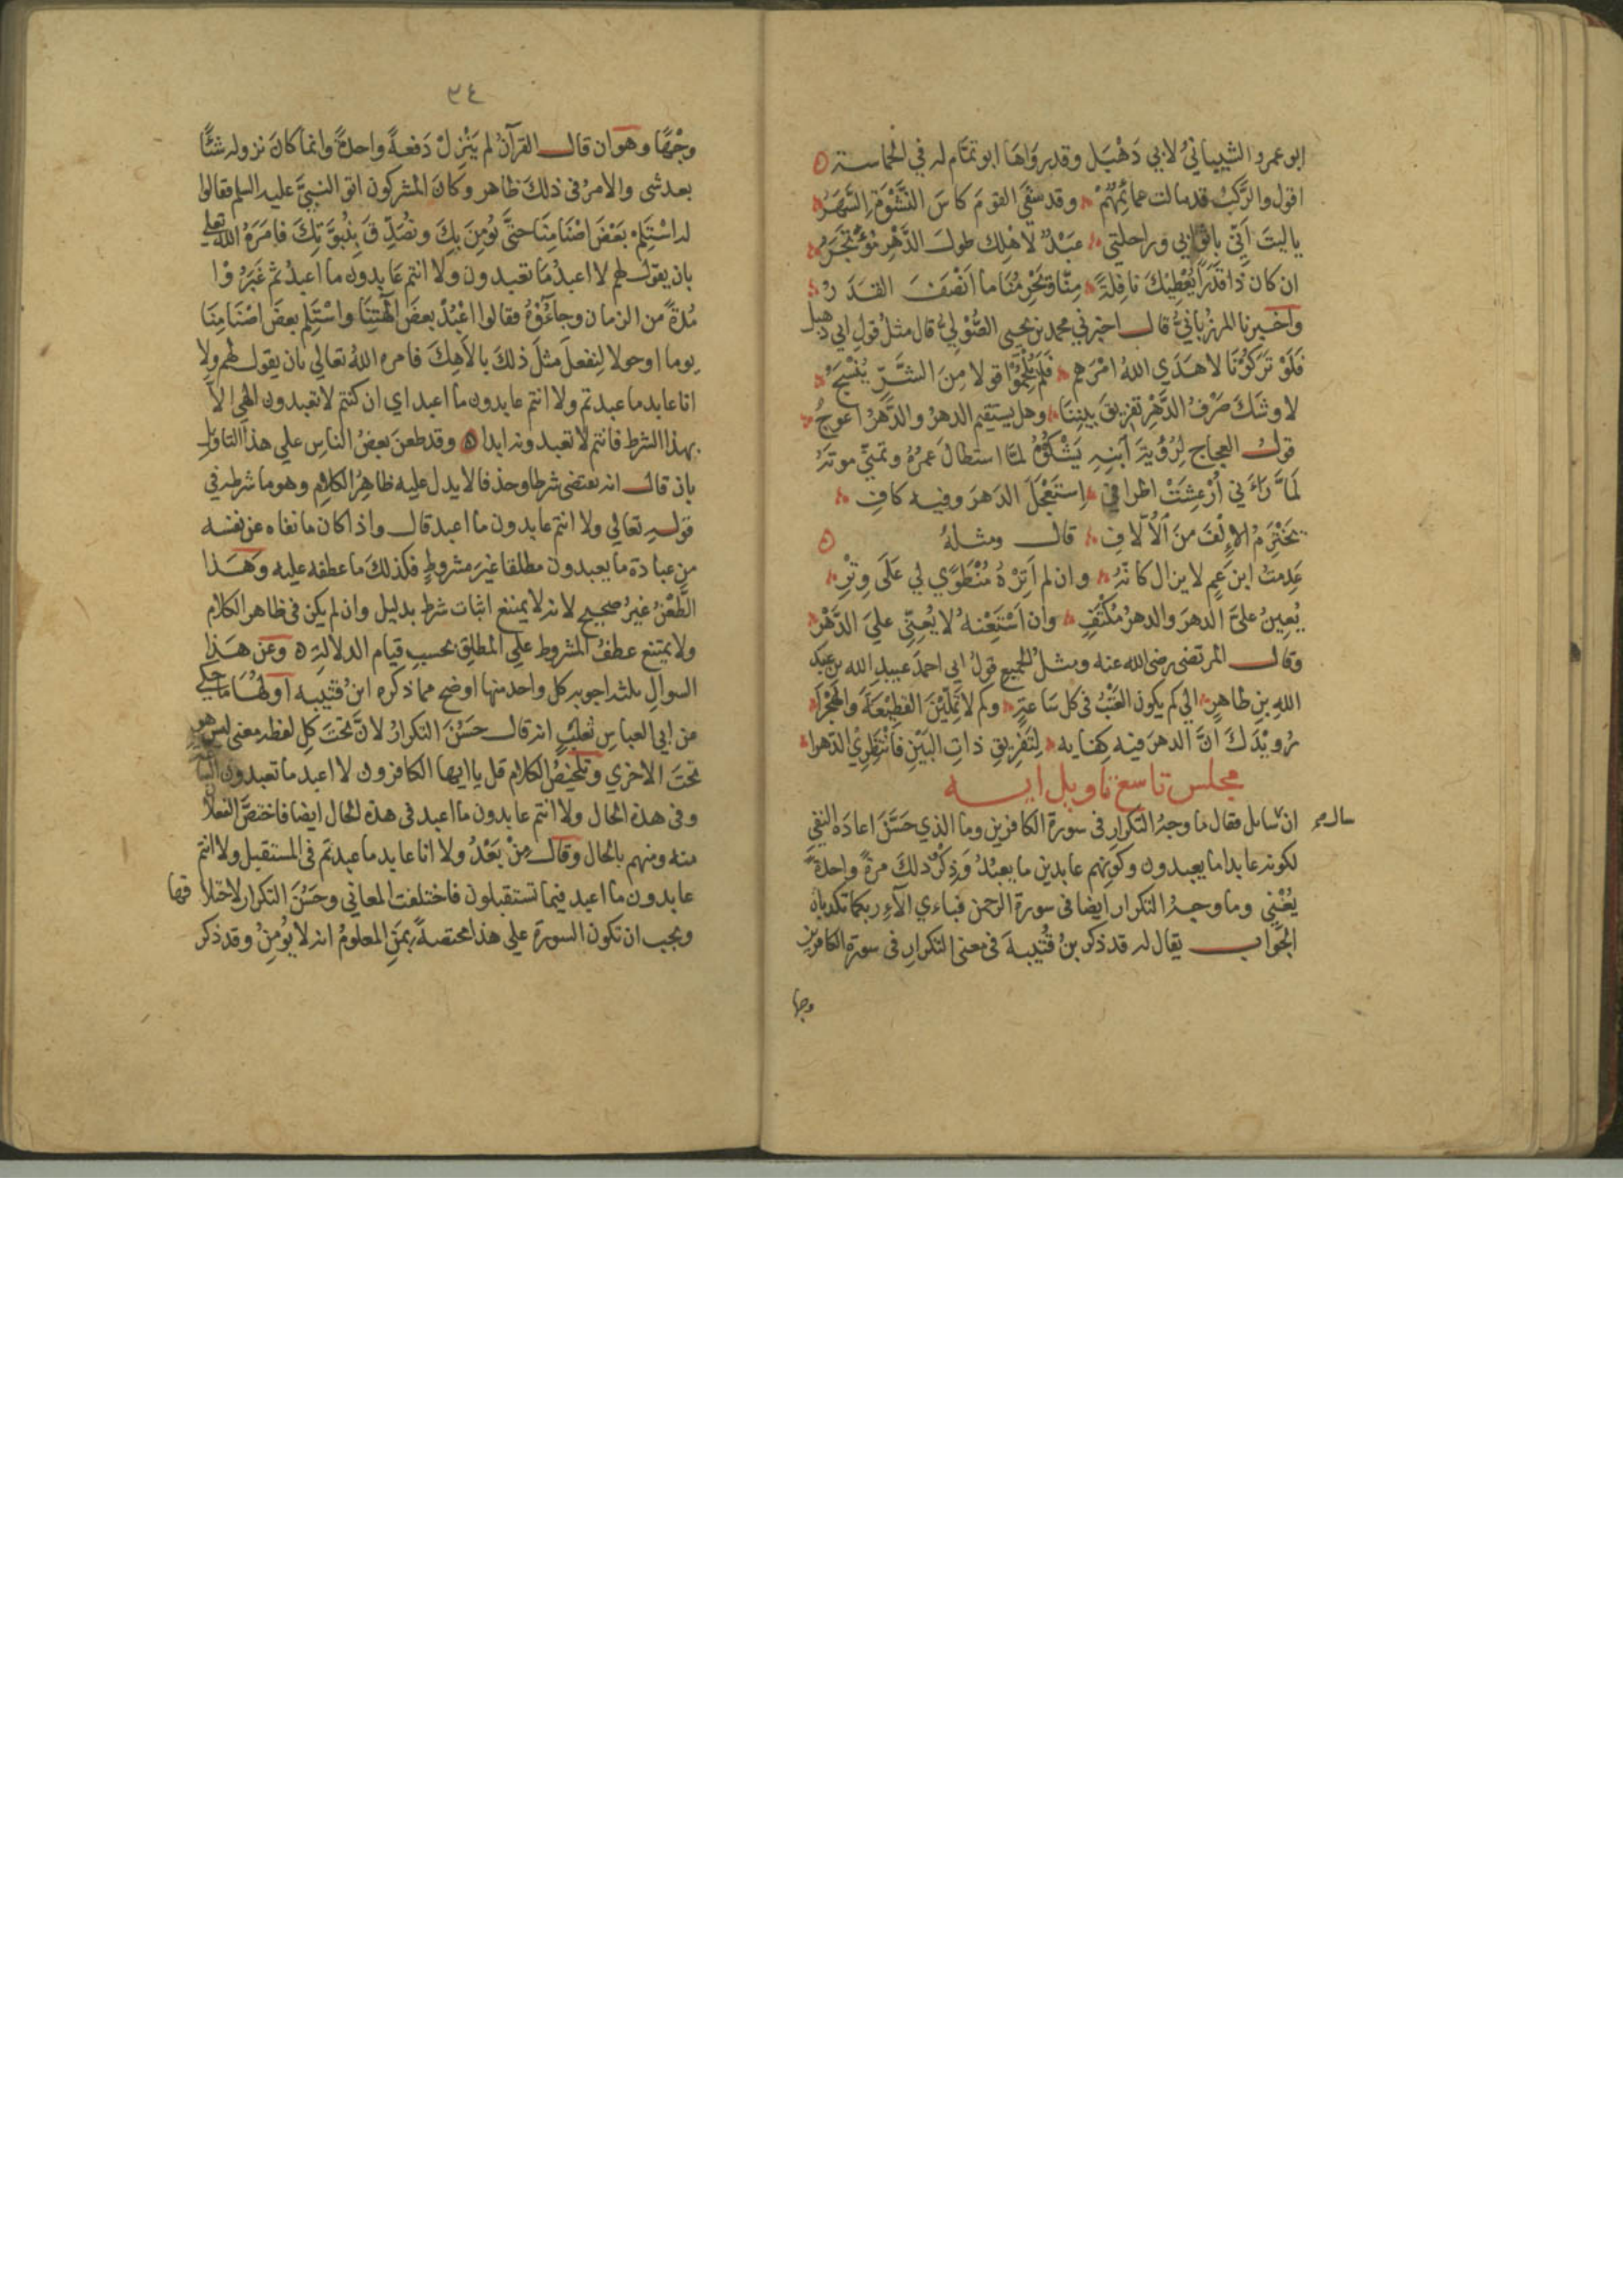 ابو عمرو الشيبانيُّ لابي دَهْبَل وقد رَوَاهَا ابو تمَّام له في الحماسة
اقول والرَّكبُ قد مالت عمائمُهُمْ وقد سَقَى القومَ كاسَ النَّشْوَةِ السَّهَرُ
يا ليتَ اَنّي باثوابي وراحلتي عَبْدٌ لاهْلِك طولَ الدَّهْرِ مُؤْتَجَرُ
ان كان ذا قَدَرًا يُعْطِيْكَ نافِلَةً مِنَّا وَتَحْرِمُنَا ما اَنْصَفَ القَدَرُ
واخبرنا المرزُبانيُّ قال اخبرني محمد بن يحيى الصُّوْلِيُّ قال مثلُ قولِ ابي دهبل
فَلَوْ تَرَكُوْنَا لا هَدَي اللهُ امْرَهم فَلَمْ يُلْحِمُوْا قولا مِنَ الشَّرِّ يُنْسَجُ
لاوشَكَ صَرْفُ الدَّهْرِ تفريقَ بيننا وهل يستقيم الدهرُ والدَّهرُ اعوجُ
قول العجاج لِرُؤْبَةَ اَبنِهِ يَشْكُوْهُ لمَّا استطالَ عمرَهُ وتمنّي موتَهُ
لَمَّا رَآنِي اُرْعِشَتْ اطرافي اِستَعْجَلَ الدَهرَ وفيه كافِ
يَخْتَرِمُ الاِلْفَ مِنَ الْاُلَّافِ قال ومثلهُ
عَدِمتُ ابنَ عمٍ لا يزال كانّهُ وان لم اَتِرْهُ مُنْطَوِي لي عَلَى وِتْرِ
يُعِينُ عليَّ الدهرَ والدهرُ مُكْتَفٍ وان اَسْتَعِنْهُ لا يُعِنِّي عليَ الدَّهْرِ
وقال المرتضى رضى الله عنه ومثلُ الجميع قولُ ابي احمدَ عبيدِ الله بن عبد
اللهِ بن طاهرٍ الي كم يكون العَتْبُ في كل ساعةٍ ولم لا تَمَلِّيْنَ القطِيْعَةَ والهَجْرَا
رُوَيْدَكِ اِنَّ الدهرَ فيه كفايه لِتَفْرِيقِ ذاتِ البَيْنِ فَانْتَظِرِي الدّهرا
مجلس تاسع تاويل ايه
ان سَايل فقال ما وجهُ التكرارِ في سورة الكافرين وما الذي حَسَّنَ اعادَة النفي
لكونه عابدا ما يعبدون وكونِهم عابدين ما يعبُدُ وَذِكْرُ ذلكَ مرةً واحدةً
يُغْنِي وما وجهُ التكرار اَيضا في سورة الرحمن فباي الآءِ ربكما تكذبان
الجَوَاب يقال له قد ذكر بنُ قُتيبةَ في معنى التكرارِ في سورة الكافرين
وجها
٣٤
وجْهًا وهو ان قال القرآنُ لم يَنْزِلْ دَفعةً واحدةً وانما كانَ نزوله شئًا
بعد شي والامرُ في ذلكَ ظاهر وكانَ المشركون اتو النبيَّ عليه السلم فقالوا
له اسْتَلِمْ بَعْضَ اصْنَامِنَا حتى نُؤمِنَ بِكَ ونُصَدِّقَ بِنُبوَّتِكَ فامَرَهُ اللهُ تعالي
بان يقول لهم لا اعبدُ مَا تعبدون ولا انتم عَابدون ما اعبدُ ثم غَبَرُوْا
مُدةً من الزمان وجآءُوْهُ فقالوا اعْبُدْ بعضَ آلهتِنَا واسْتَلِم بعضَ اصْنَامِنَا
يوما اوحولا لِنفعلَ مثلَ ذلكَ بالاهِكَ فامره اللهُ تعالي بان يقول لهم ولا
انا عابد ما عبدتم ولا انتم عابدون ما اعبد اي ان كنتم لا تعبدون الهي الا
بهذا الشرط فانتم لا تعبدونه ابدا وقد طعنَ بعضُ الناسِ علي هذا التاويل
بان قال انه يقتضى شرطا وحذفا لا يدل عليه ظاهِرُ الكلامِ وهو ما شرطه في
قولهِ تعالي ولا انتم عابدون ما اعبد قال واذا كان ما نفاه عن نفسه
من عبادة ما يعبدون مطلقا غيرَ مشروطٍ فكذلكَ ما عطفه عليه وهَذا
الطَّعْنُ غيرُ صحيح لانه لا يمتنع اثبات شرط بدليل وان لم يكن في ظاهر الكلام
ولا يمتنع عطفُ المشروط علي المطلقِ بحسبِ قيام الدلالةِ وعن هذا
السوالِ ثلثه اجوبه كل واحد منها اوضح مما ذكره ابنُ قتيبه اَولهُا ما حكي
عن ابي العباسِ ثعلبٍ انه قال حَسُنَ التكرارُ لانّ تحتَ كلِ لفظه معنى ليس هو
تحتَ الاخري وتلخيصُ الكلامِ قل يا ايها الكافرون لا اعبد ما تعبدون
وفي هذه الحال ولا انتم عابدون ما اعبد في هذه الحال ايضا فاختصَّ الفعلان
منه ومنهم بالحال وقال مِنْ بَعْدُ ولا انا عابد ما عبدتم في المستقبل ولا انتم
عابدون ما اعبد فيما تستقبلون فاختلفت المعاني وحَسُنَ التكرار لاختلافها
ويجب ان تكون السورة علي هذا مختصةً بمَنِ المعلومُ انه لا يؤمنُ وقد ذكر